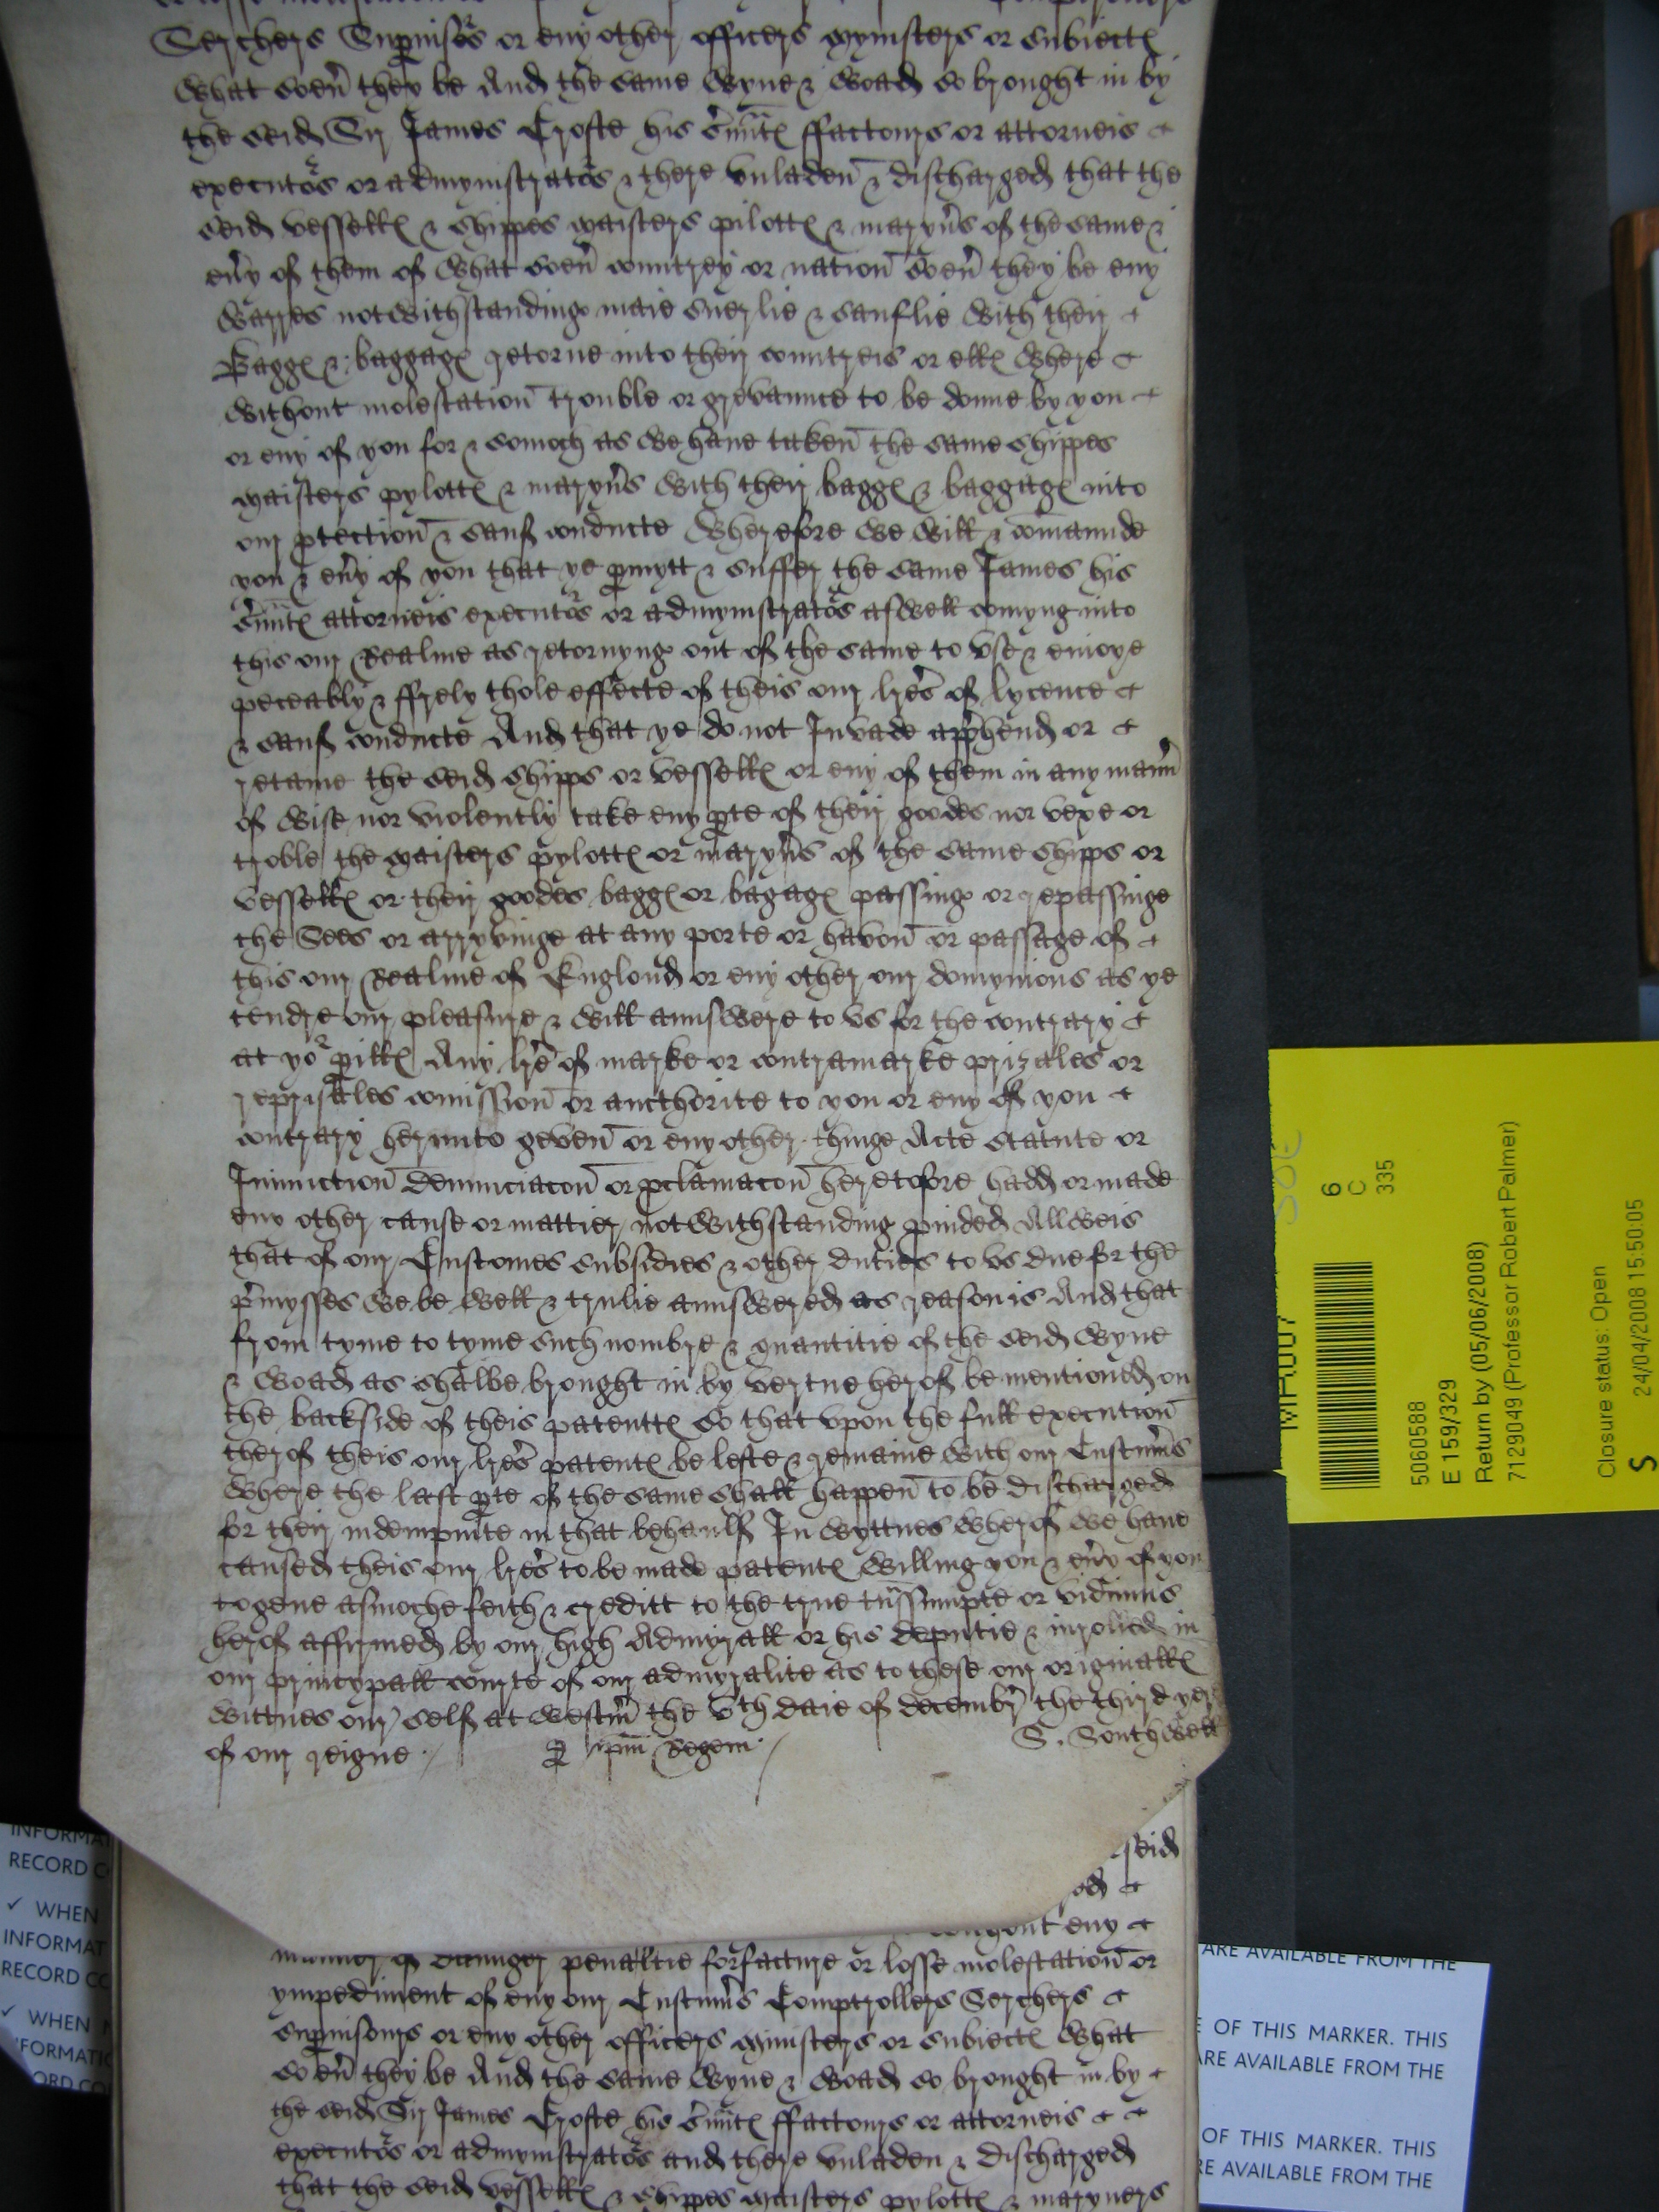 Serchers Supvisors or eny other officers mynisters or subiectes
what soeu' they be And the same wyne & woad so brought in by
the seid Sir James Crofte his s'untes ffactours or attorneis
executors or admynistrators & there vnladen & discharged that the
seid vesselles & shippes maisters pilottes & maryn's of the same &
eu'y of them of what soeu' countrey or nation soeu' they be eny
warres notwithstanding maie suerlie & sauflie with their
Bagges & baggages retorne into their countreis or elles where
without molestation trouble or grevaunce to be donne by you
or eny of you for & somoch as we haue taken the same shippes
maisters pylottes & maryn's with their bagges & baggages into
our ptection & sauf conducte Wherefore we will & comaunde
you & eu'y of you that ye pmytt & suffer the same James his
s'untes attorneis executors or admynistrators aswell comyng into
this our Realme as retornyng out of the same to vse & enioye
peceably & ffrely thole effecte of theis our lres of lycence
& sauf conducte And that ye do not Invade app'hend or
retaine the seid shipps or vesselles or eny of them in any mann'
of wise nor violently take eny pte of their goodes nor vexe or
troble the maisters pylottes or maryn's of the same shipps or
vesselles or their goodes bagges or bagages passing or repassinge
the Sees or arryvinge at any porte or havon or passage of
this our Realme of Englond or eny other our domynions as ye
tendre our pleasure & will aunswere to vs for the contrary
at yor pilles Any lre of marke or contramarke prizales or
reprisales comission or aucthorite to you or eny of you
contrary herunto geven or eny other thinge Acte statute or
Iniunction Denunciacon or pclamacon heretofore hadd or made
eny other cause or mattier notwithstanding puided Allweis
that of our Customes subsidies & other duties to vs due for the
p'mysses we be well & trulie aunswered as reason is And that
from tyme to tyme such nombre & quantitie of the seid wyne
& woad as shalbe brought in by vertue herof be mentionedd on
the backside of theis patenttes so that vpon the full execution
therof theis our lres patentes be lefte & remaine with our Custum's
where the last pte of the same shall happen to be discharged
for their indempnite in that behaulf In wyttnes wherof we haue
caused theis our lres to be made patentes willing you & eu'y of you
to geue asmoche feith & creditt to the true t'nssumpte or vidimus
herof affirmed by our high Admyrall or his deputie & inrolled in
our princypall courte of our admyralite as to these our originalles
wittnes our self at westm' the vth daie of decembr' the third yere
of our reigne p ipm Regem S. Southwell
seid
without eny
manner of daunger penaltie forfacture or losse molestation or
ympediment of eny our Custum's Comptrollers Serchers
supuisours or eny other officers ministers or subiectes what
so eu' they be And the same wyne & woad so brought in by
the seid Sir James Crofte his s'untes ffactours or attorneis
executors or admynistrators and there vnladen & discharged
that the seid vesselles & shippes maisters pylottes & maryners
6
C
335
5060588
E 159/329
Return by (05/06/2008)
7129049 (Professor Robert Palmer)
Closure status: Open
24/04/2008 15:50:05
S
RECORD
✓ WHEN
INFORMAT
RECORD CO
✓ WHEN
ARE AVAILABLE FROM THE
OF THIS MARKER. THIS
ARE AVAILABLE FROM THE
OF THIS MARKER. THIS
RE AVAILABLE FROM THE